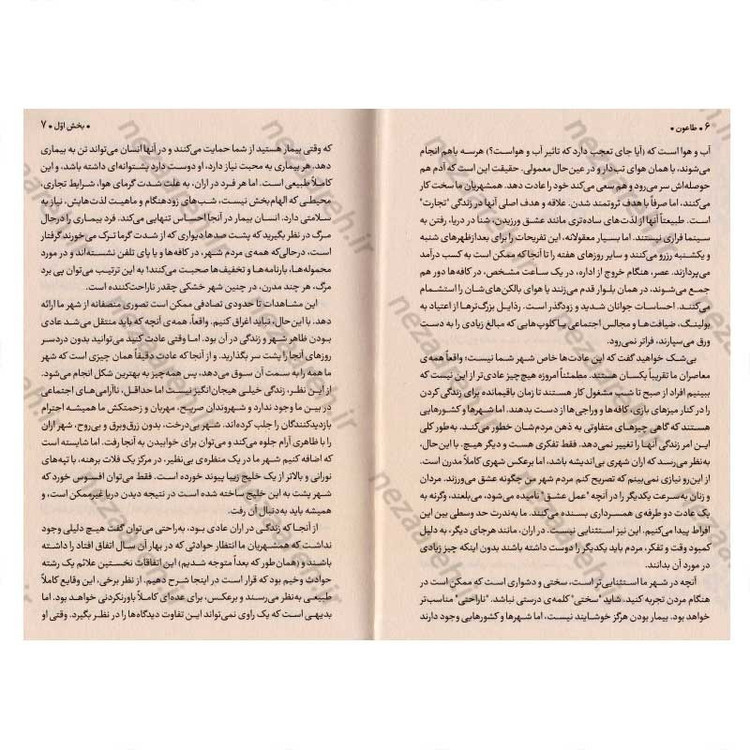 ۶ • طاعون •
آب و هوا است که (آیا جای تعجب دارد که تاثیر آب و هواست؟) هرسه باهم انجام
می‌شوند، با همان هوای تب‌دار و در عین‌حال معمولی. حقیقت این است که آدم هم
حوصله‌اش سر می‌رود و هم سعی می‌کند خود را عادت دهد. همشهریان ما سخت کار
می‌کنند، اما صرفاً با هدف ثروتمند شدن. علاقه و هدف اصلی آنها در زندگی "تجارت"
است. طبیعتاً آنها از لذت‌های ساده‌تری مانند عشق ورزیدن، شنا در دریا، رفتن به
سینما فراری نیستند. اما بسیار معقولانه، این تفریحات را برای بعدازظهرهای شنبه
و یکشنبه رزرو می‌کنند و سایر روزهای هفته را تا آنجا که ممکن است به کسب درآمد
می‌پردازند. عصر، هنگام خروج از اداره، در یک ساعت مشخص، در کافه‌ها دور هم
جمع می‌شوند، در همان بلوار قدم می‌زنند یا هوای بالکن‌های‌شان را استشمام
می‌کنند. احساسات جوانان شدید و زودگذر است. رذایل بزرگ‌ترها از اعتیاد به
بولینگ، ضیافت‌ها و مجالس اجتماعی یا کلوپ هایی که مبالغ زیادی را به دست
ورق می‌سپارند، فراتر نمی‌رود.
بی‌شک خواهید گفت که این عادت‌ها خاص شهر شما نیست؛ واقعاً همه‌ی
معاصران ما تقریباً یکسان هستند. مطمئناً امروزه هیچ‌چیز عادی‌تر از این نیست که
ببینیم افراد از صبح تا شب مشغول کار هستند تا زمان باقیمانده برای زندگی کردن
را در کنار میزهای بازی، کافه‌ها و وراجی‌ها از دست بدهند. اما شهرها و کشورهایی
هستند که گاهی چیزهای متفاوتی به ذهن مردم‌شان خطور می‌کند. به‌طور کلی
این امر زندگی آنها را تغییر نمی‌دهد. فقط تفکری هست و دیگر هیچ. با این‌حال،
به‌نظر می‌رسد که اران شهری بی‌اندیشه باشد، اما برعکس شهری کاملاً مدرن است.
از این‌رو نیازی نمی‌بینم که تصریح کنم مردم شهر من چگونه عشق می‌ورزند. مردان
و زنان به‌سرعت یکدیگر را در آنچه "عمل عشق" نامیده می‌شود، می‌بلعند، وگرنه به
یک عادت دو طرفه‌ی همسرداری بسنده می‌کنند. ما به‌ندرت حد وسطی بین این
افراط پیدا می‌کنیم. این نیز استثنایی نیست. در اران، مانند هرجای دیگر، به دلیل
کمبود وقت و تفکر، مردم باید یکدیگر را دوست داشته باشند بدون اینکه چیز زیادی
در مورد آن بدانند.
آنچه در شهر ما استثنایی‌تر است، سختی و دشواری است که ممکن است در
هنگام مردن تجربه کنید. شاید "سختی" کلمه‌ی درستی نباشد. "ناراحتی" مناسب‌تر
خواهد بود. بیمار بودن هرگز خوشایند نیست، اما شهرها و کشورهایی وجود دارند
• بخش اوّل • ۷
که وقتی بیمار هستید از شما حمایت می‌کنند و در آنها انسان می‌تواند تن به بیماری
دهد. هر بیماری به محبت نیاز دارد، او دوست دارد پشتوانه‌ای داشته باشد، و این
کاملاً طبیعی است. اما هر فرد در اران، به علت شدت گرمای هوا، شرایط تجاری،
محیطی که الهام‌بخش نیست، شب‌های زودهنگام و ماهیت لذت‌هایش، نیاز به
سلامتی دارد. انسان بیمار در آنجا احساس تنهایی می‌کند. فرد بیماری را درحال
مرگ در نظر بگیرید که پشت صدها دیواری که از شدت گرما ترک می‌خورند گرفتار
است، درحالی‌که همه‌ی مردم شهر، در کافه‌ها و یا پای تلفن نشسته‌اند و در مورد
محموله‌ها، بارنامه‌ها و تخفیف‌ها صحبت می‌کنند! به این ترتیب می‌توان پی برد
مرگ، هر چند مدرن، در چنین شهر خشکی چقدر ناراحت‌کننده است.
این مشاهدات تا حدودی تصادفی ممکن است تصوری منصفانه از شهر ما ارائه
دهد. با این‌حال، نباید اغراق کنیم. واقعاً، همه‌ی آنچه که باید منتقل می‌شد عادی
بودن ظاهر شهر و زندگی در آن بود. اما وقتی عادت کنید می‌توانید بدون دردسر
روزهای آنجا را پشت سر بگذارید. و از آنجا که عادت دقیقاً همان چیزی است که شهر
ما همه را به سمت آن سوق می‌دهد، پس همه‌چیز به بهترین شکل انجام می‌شود.
از این نظر، زندگی خیلی هیجان‌انگیز نیست اما حداقل، ناآرامی‌های اجتماعی
در بین ما وجود ندارد و شهروندان صریح، مهربان و زحمتکش ما همیشه احترام
بازدیدکنندگان را جلب کرده‌اند. شهر بی‌درخت، بدون زرق‌وبرق و بی‌روح، شهر اران
را با ظاهری آرام جلوه می‌کند و می‌توان برای خوابیدن به آنجا رفت. اما شایسته است
که اضافه کنیم شهر ما در یک منظره‌ی بی‌نظیر، در مرکز یک فلات برهنه، با تپه‌های
نورانی و بالاتر از یک خلیج زیبا پیوند خورده است. فقط می‌توان افسوس خورد که
شهر پشت به این خلیج ساخته شده است و در نتیجه دیدن دریا غیرممکن است، و
همیشه باید به‌دنبال آن رفت.
از آنجا که زندگی در اران عادی بود، به‌راحتی می‌توان گفت هیچ دلیلی وجود
نداشت که همشهریان ما انتظار حوادثی که در بهار آن سال اتفاق افتاد را داشته
باشند و (همان طور که بعداً متوجه شدیم) این اتفاقات نخستین علائم یک رشته
حوادث وخیم بود که قرار است در اینجا شرح دهیم. از نظر برخی، این وقایع کاملاً
طبیعی به‌نظر می‌رسند و برعکس، برای عده‌ای کاملاً باورنکردنی خواهد بود. اما
بدیهی است که یک راوی نمی‌تواند این تفاوت دیدگاه‌ها را در نظر بگیرد. وقتی او